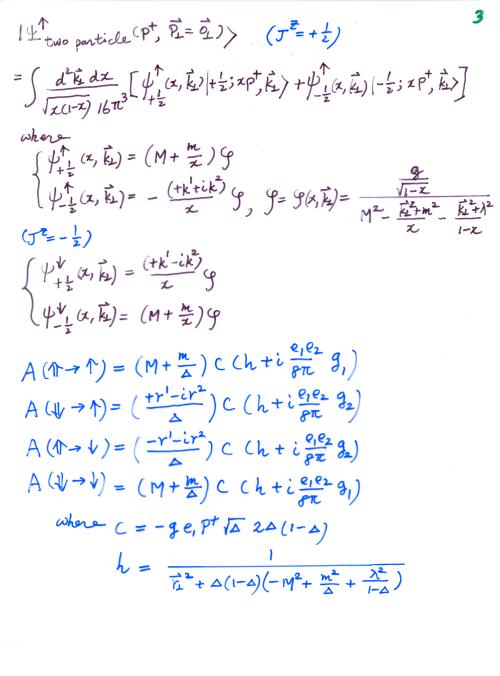 3
|Ψ↑ two particle (P⁺, P⃗⊥ = 0⃗⊥)⟩ (Jᶻ = +1/2)
= ∫ d²k⃗⊥ dx / (√(x(1-x)) 16π³) [ψ↑₊½(x, k⃗⊥) |+½; xP⁺, k⃗⊥⟩ + ψ↑₋½(x, k⃗⊥) |-½; xP⁺, k⃗⊥⟩]
where
{ ψ↑₊½(x, k⃗⊥) = (M + m/x) φ
ψ↑₋½(x, k⃗⊥) = - (+k¹+ik²)/x φ, φ = φ(x, k⃗⊥) = (g/√(1-x)) / (M² - (k⃗⊥²+m²)/x - (k⃗⊥²+λ²)/(1-x))
(Jᶻ = -1/2)
{ ψ↓₊½(x, k⃗⊥) = (+k¹-ik²)/x φ
ψ↓₋½(x, k⃗⊥) = (M + m/x) φ
A(⇑→↑) = (M + m/Δ) C (h + i e₁e₂/8π g₁)
A(⇓→↑) = (+r¹-ir²/Δ) C (h + i e₁e₂/8π g₂)
A(⇑→↓) = (-r¹-ir²/Δ) C (h + i e₁e₂/8π g₂)
A(⇓→↓) = (M + m/Δ) C (h + i e₁e₂/8π g₁)
where C = -g e₁ P⁺ √Δ 2Δ(1-Δ)
h = 1 / (r⃗⊥² + Δ(1-Δ)(-M² + m²/Δ + λ²/(1-Δ)))